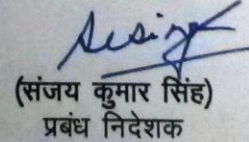 (संजय कुमार सिंह)
प्रबंध निदेशक